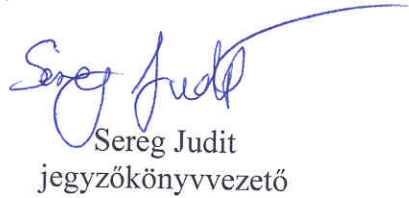 Sereg Judit
Sereg Judit
jegyzőkönyvvezető